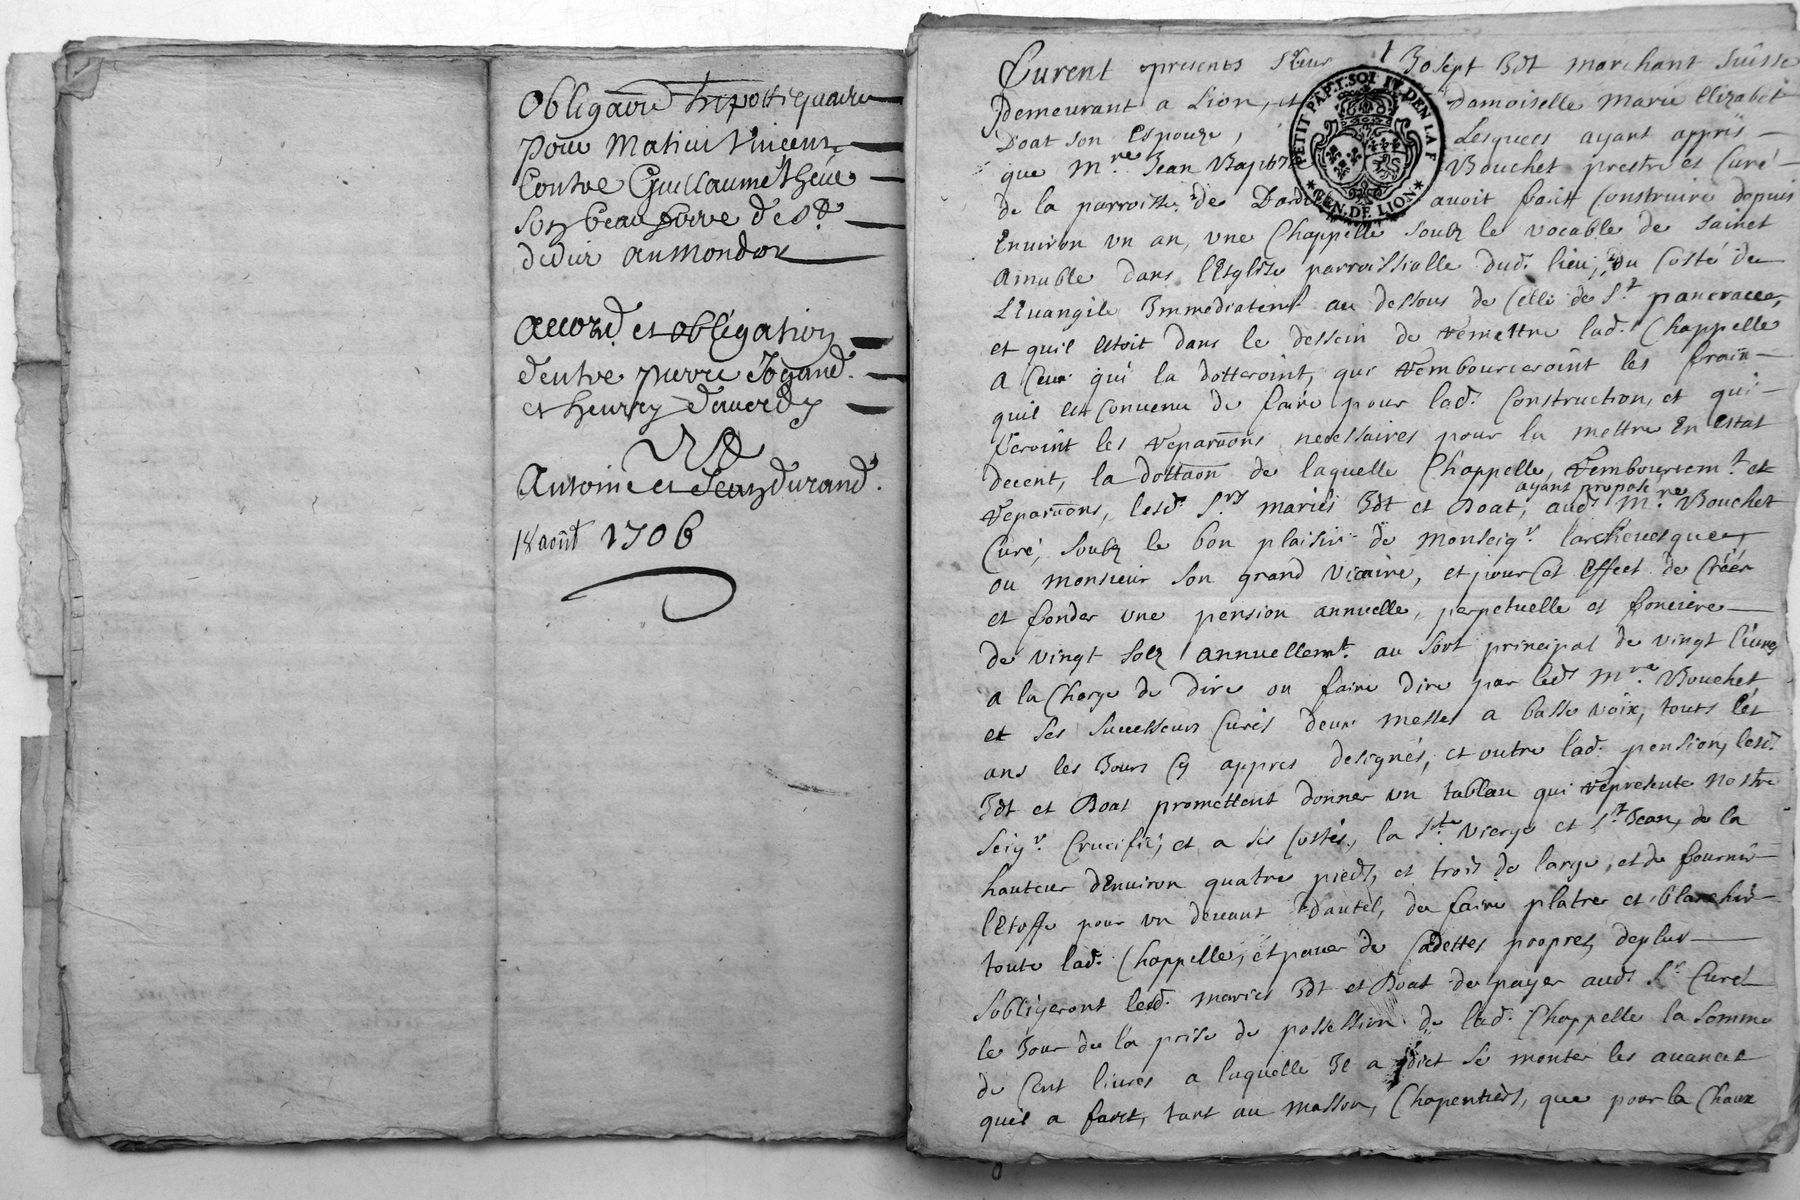 Obligãõn hipottiquaire
pour Mathieu Vincent
Contre Guillaume
son beau frere de St.
didier au mondor
accord et obligation
dentre pierre Jogand.
et henrry
Antoine et Jean durand.
18 aout 1706
Furent presents Sieur Joseph Bdt marchant suisse
demeurant a Lion, et damoiselle Marie Elizabet
Doat son Espouze, Lesquees ayant appris
que Mre. Jean Baptiste Bouchet prestre et Curé
de la parroisse de avoit faict Construire depuis
Environ un an, une Chappelle soubz le vocable de sainct
Aimable dans l'Esglize parroissialle dud. lieu, du Costé de
L'Evangile Immediatemt. au dessous de Celle de St. pancrace,
et quil estoit dans le dessein de remettre lad. Chappelle
a Ceux qui la dotteroint, que rembourceroint les fraix
quil est Convenu de faire pour lad. Construction, et qui
feroint les reparãõns necessaires pour la mettre En estat
decent, la dottãõn de laquelle Chappelle, remboursemt. et
ayant proposé
reparãõns, lesd. Srs mariés Bdt et Doat, aud. Mre. Bouchet
Curé, soubz le bon plaisir de Monseigr. larchevesque
ou monsieur son grand vicaire, et pour Cet Effect de Créér
et fonder une pension annuelle, perpetuelle et fonciere
de vingt solz annuellemt. au sort principal de vingt livres
a la Charge de dire ou faire dire par led. Mre. Bouchet
et ses successeurs Curés deux messes a basse voix, touts les
ans les Jours Cy appres designés, et outre lad. pension, lesd.
Bdt et Doat promettent donner un tableau qui represente nostre
Seigr. Crucifié, et a ses Costés, la Ste. Vierge et St. Jean, de la
hauteur d'Environ quatre pieds, et trois de large, et de fournir
l'Etoffe pour un devant d'autel, de faire platrer et blanchir
toute lad. Chappelle, et paver de Cadettes propres, deplus
s'obligeront lesd. mariés Bdt et Doat de payer aud. Sr. Curé
le Jour de la prise de possession de lad. Chappelle la somme
de Cent livres a laquelle Il a dict se monter les avances
quil a faict, tant au masson, Chapentiers, que pour la Chaux
PETIT PAP. T. SOL IT DEN LA F
* GEN. DE LION *